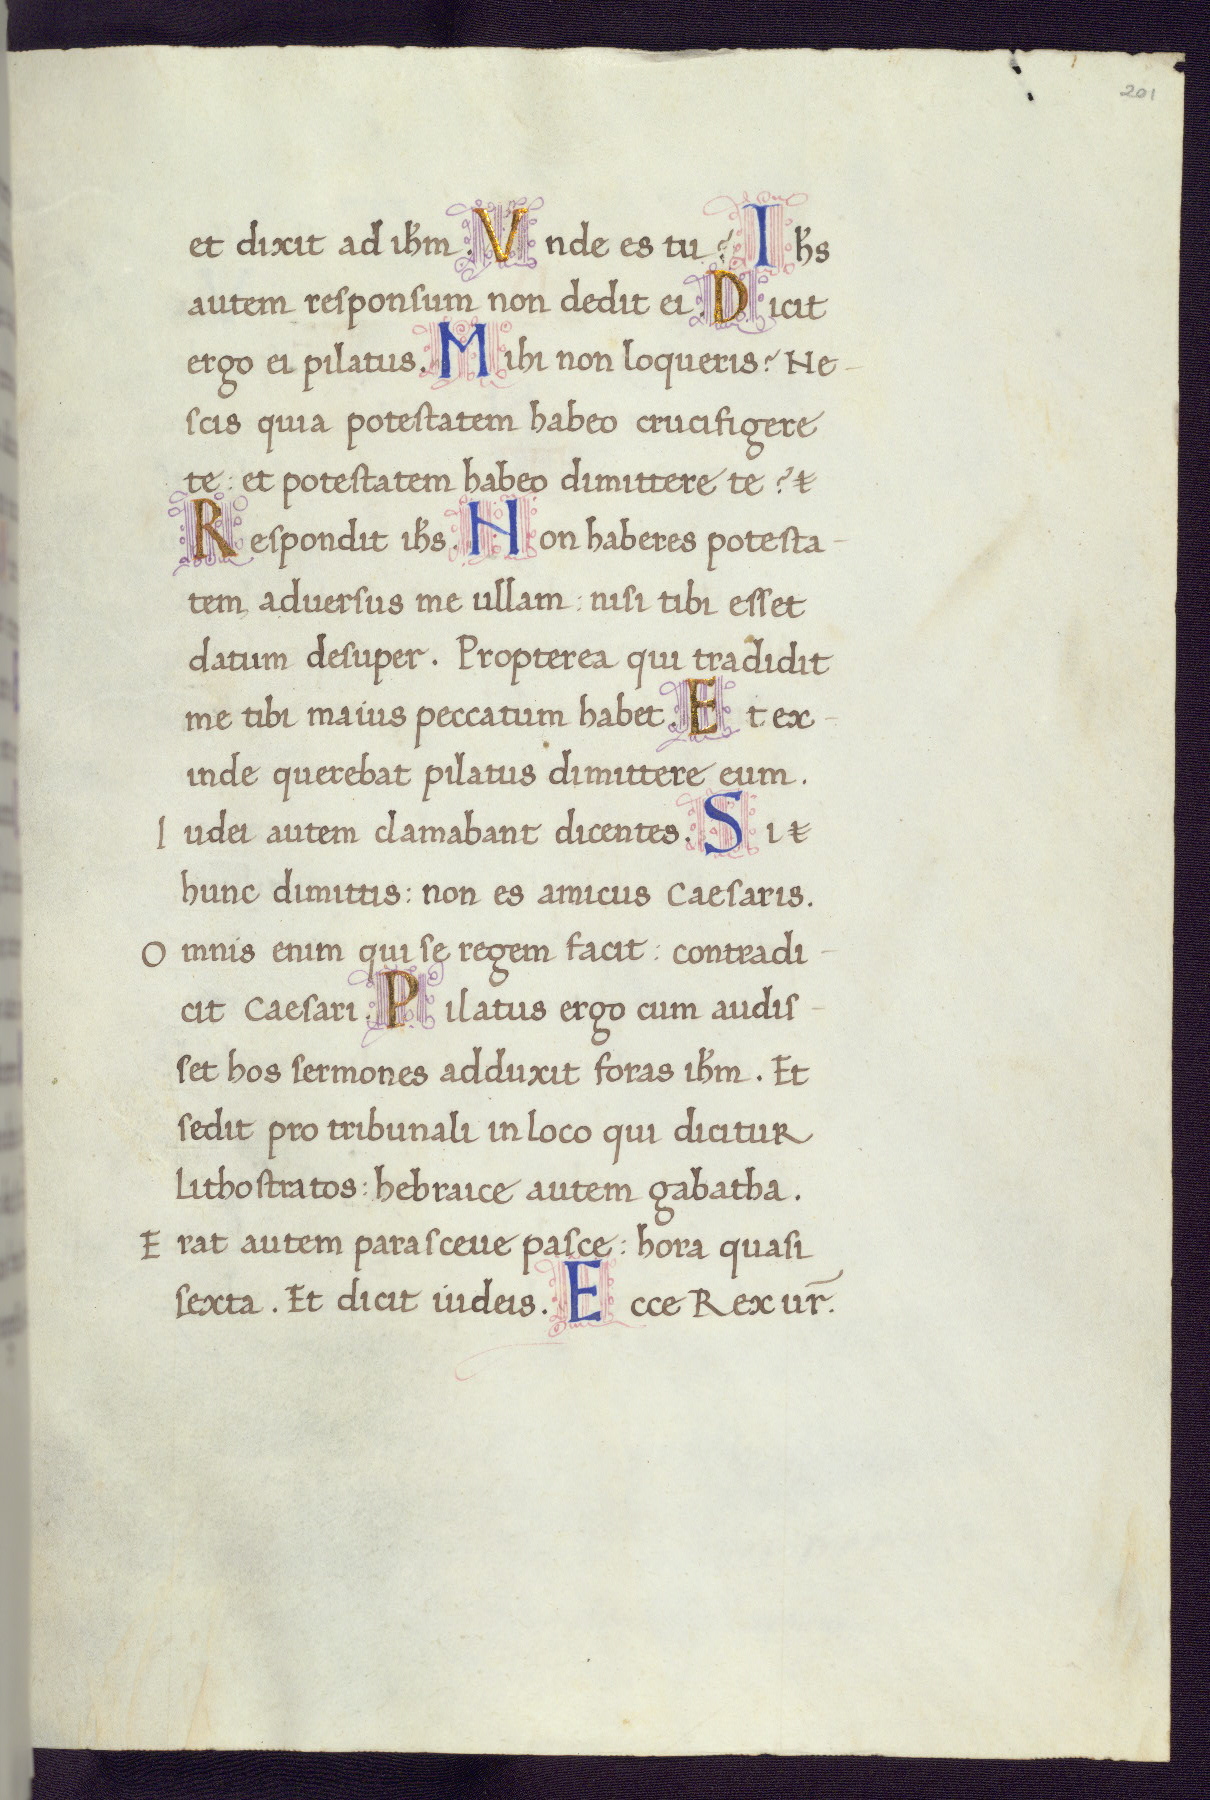 201
et dixit ad ihm. Vnde es tu? Ihs
autem responsum non dedit ei. Dicit
ergo ei pilatus. Mihi non loqueris? Ne-
scis quia potestatem habeo crucifigere
te: et potestatem habeo dimittere te?
Respondit ihs. Non haberes potesta-
tem adversus me ullam: nisi tibi esset
datum desuper. Propterea qui tradidit
me tibi maius peccatum habet. Et ex-
inde querebat pilatus dimittere eum.
Iudei autem clamabant dicentes. Si
hunc dimittis: non es amicus Caesaris.
Omnis enim qui se regem facit: contradi-
cit Caesari. Pilatus ergo cum audis-
set hos sermones adduxit foras ihm. Et
sedit pro tribunali in loco qui dicitur
Lithostratos: hebraice autem gabatha.
Erat autem parasceue pasce: hora quasi
sexta. Et dicit iudeis. Ecce Rex ur̄.